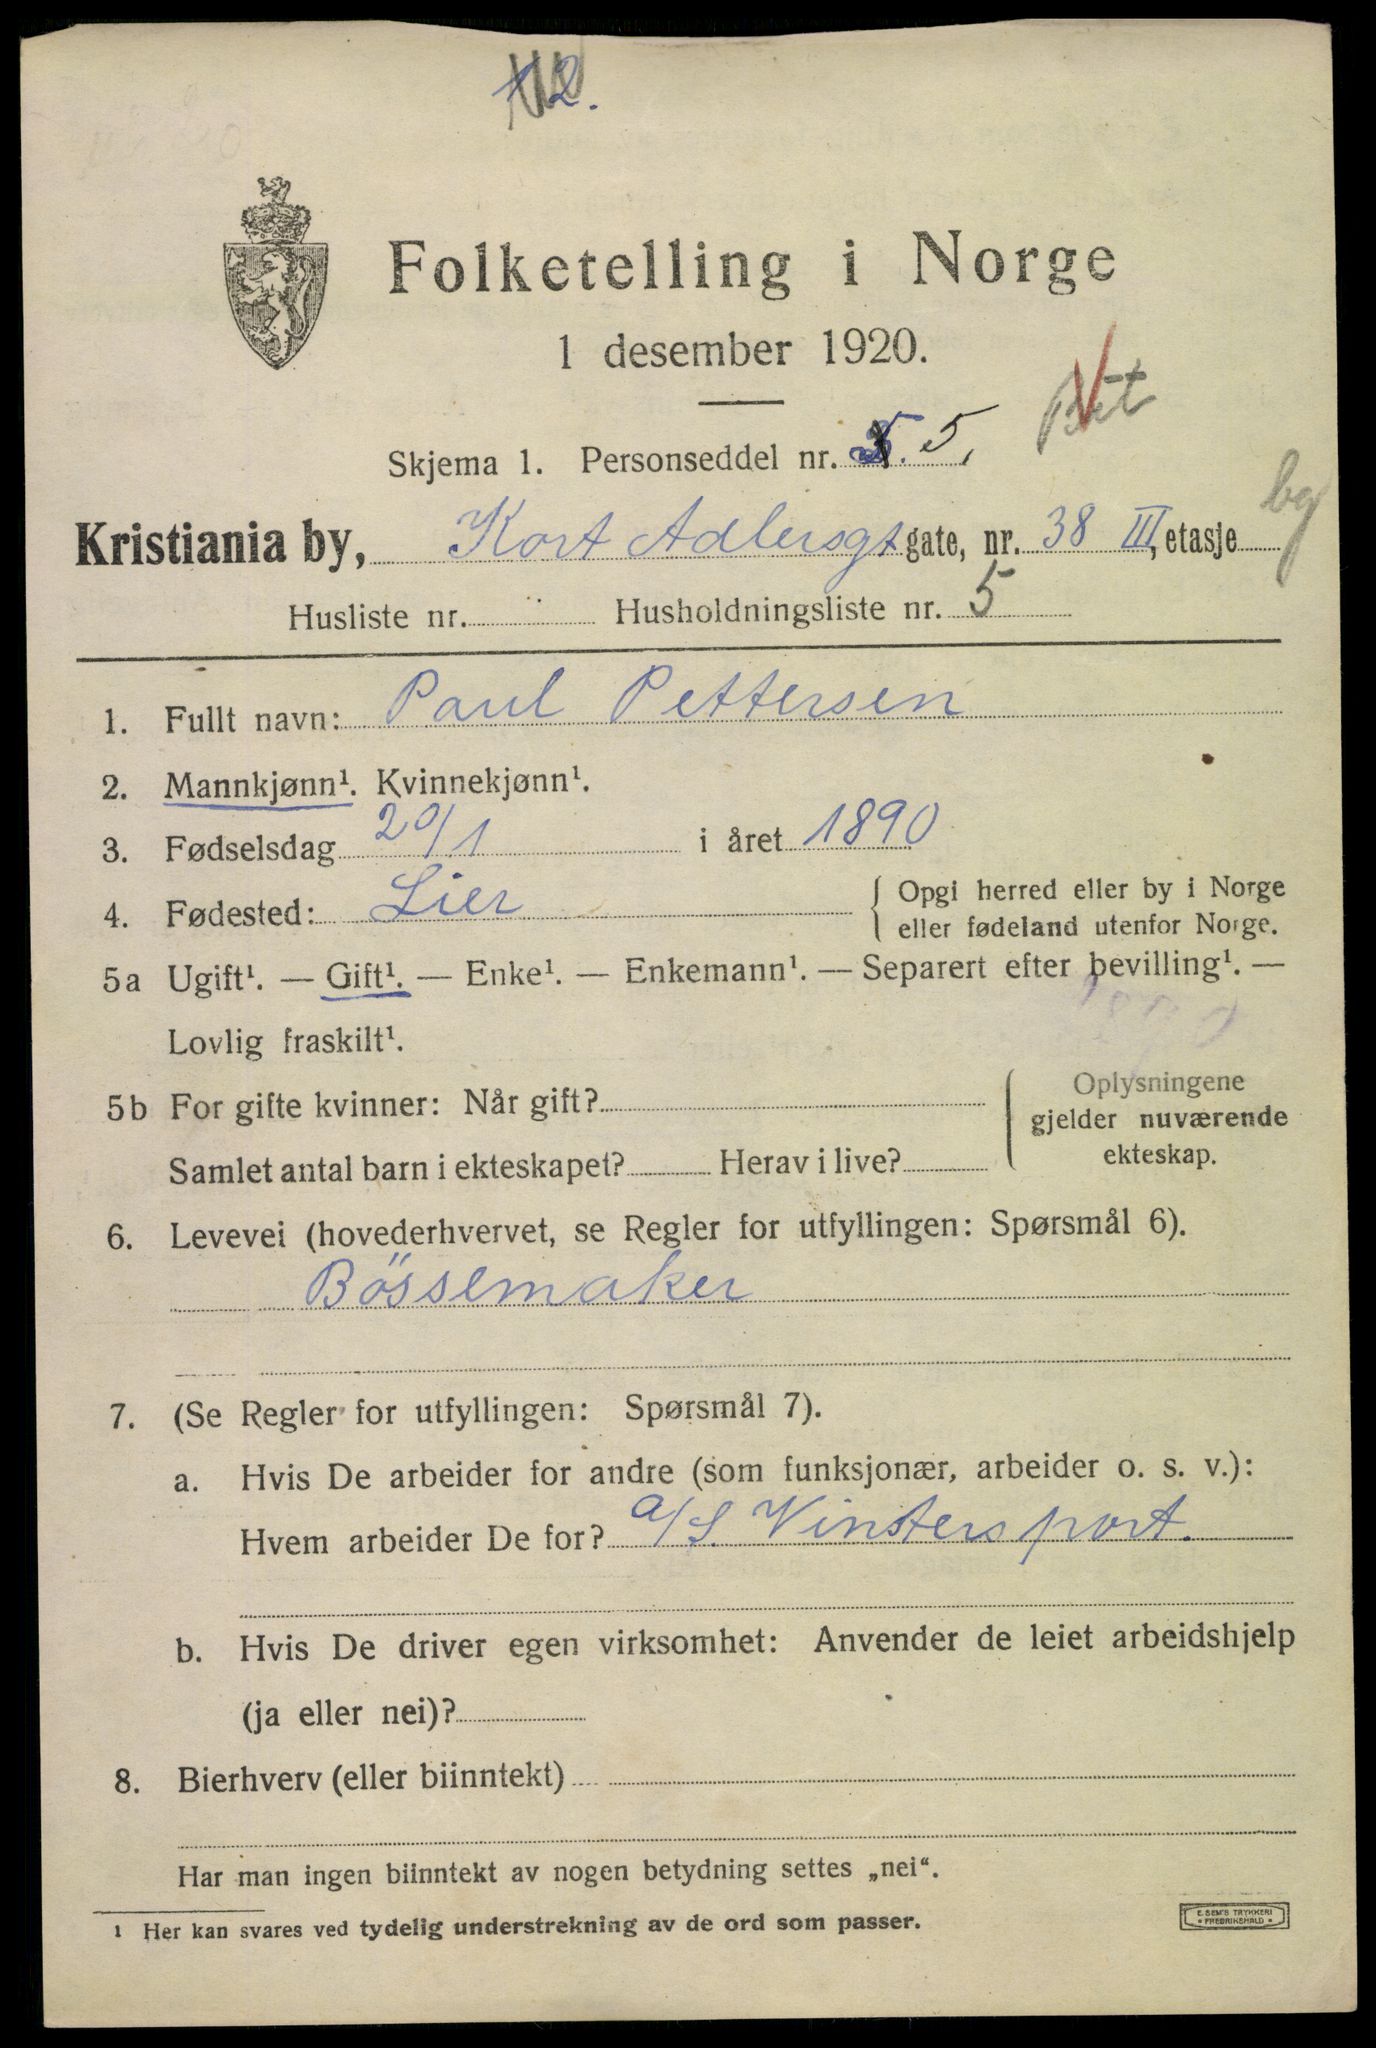 2.
Folketelling i Norge
1 desember 1920.
Skjema 1. Personseddel nr. 5.
Kristiania by, Kort Adlersgt gate, nr. 38 III, etasje
Husliste nr. Husholdningsliste nr. 5
1. Fullt navn: Paul Pettersen
2. Mannkjønn¹. Kvinnekjønn¹.
3. Fødselsdag 20/1 i året 1890
4. Fødested: Lier { Opgi herred eller by i Norge
eller fødeland utenfor Norge.
5a Ugift¹. — Gift¹. — Enke¹. — Enkemann¹. — Separert efter bevilling¹. —
Lovlig fraskilt¹.
5b For gifte kvinner: Når gift? { Oplysningene
gjelder nuværende
Samlet antal barn i ekteskapet? Herav i live? ekteskap.
6. Levevei (hovederhvervet, se Regler for utfyllingen: Spørsmål 6).
Bössemaker
7. (Se Regler for utfyllingen: Spørsmål 7).
a. Hvis De arbeider for andre (som funksjonær, arbeider o. s. v.):
Hvem arbeider De for? a/S. Vintersport.
b. Hvis De driver egen virksomhet: Anvender de leiet arbeidshjelp
(ja eller nei)?
8. Bierhverv (eller biinntekt)
Har man ingen biinntekt av nogen betydning settes „nei“.
1 Her kan svares ved tydelig understrekning av de ord som passer.
E. SEM'S TRYKKERI
FREDRIKSHALD